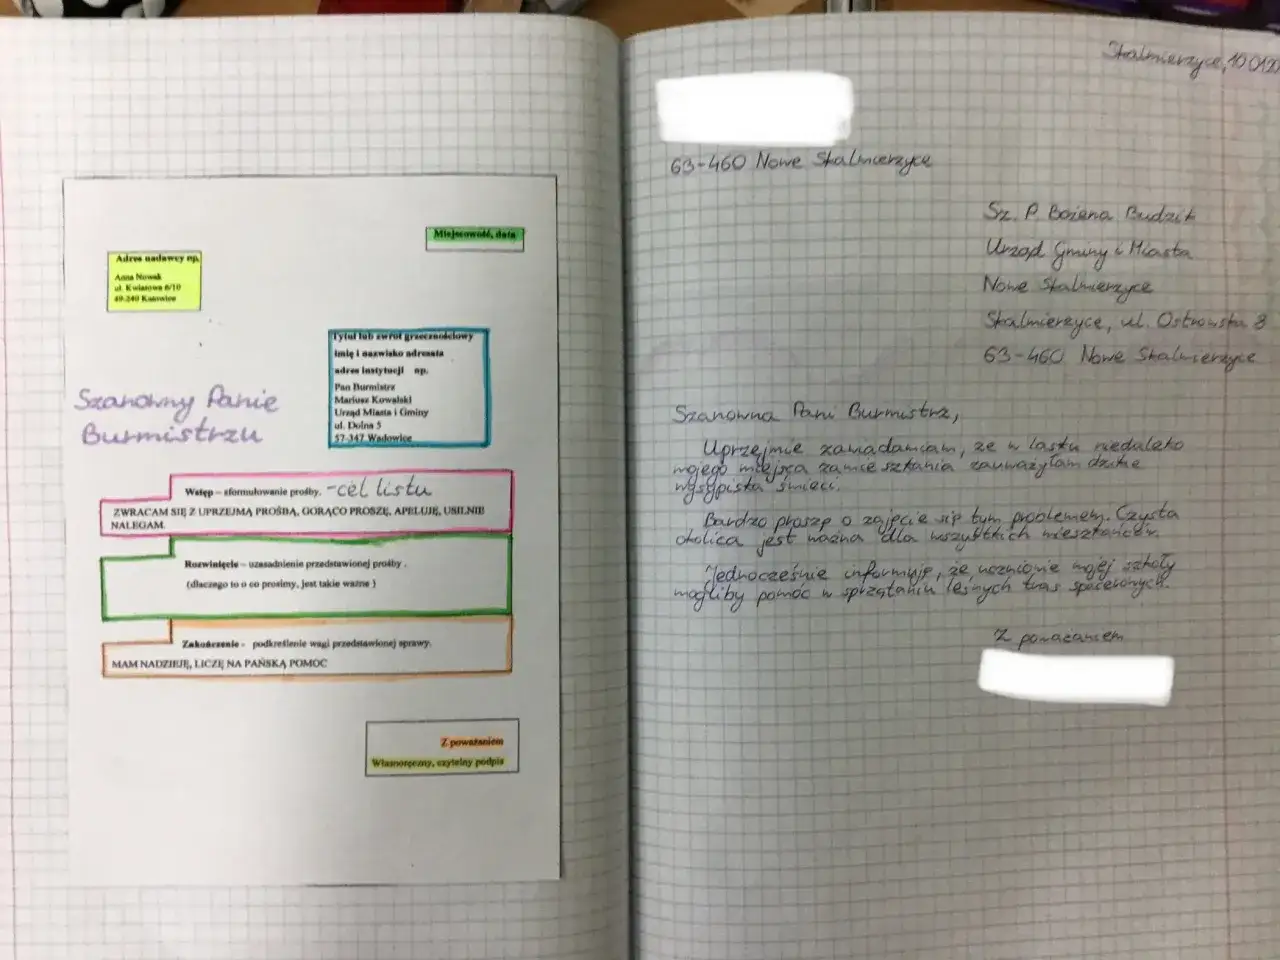 Miejscowość, data
Adres nadawcy np.
Anna Nowak
ul. Kwiatowa 6/10
49-240 Katowice
Tytuł lub zwrot grzecznościowy
imię i nazwisko adresata
adres instytucji np.
Pan Burmistrz
Mariusz Kowalski
Urząd Miasta i Gminy
ul. Dolna 5
57-347 Wadowice
Szanowny Panie
Burmistrzu
Wstęp – sformułowanie prośby. - cel listu
ZWRACAM SIĘ Z UPRZEJMĄ PROŚBĄ, GORĄCO PROSZĘ, APELUJĘ, USILNIE
NALEGAM.
Rozwinięcie – uzasadnienie przedstawionej prośby .
(dlaczego to o co prosimy, jest takie ważne )
Zakończenie - podkreślenie wagi przedstawionej sprawy.
MAM NADZIEJĘ, LICZĘ NA PAŃSKĄ POMOC
Z poważaniem
Własnoręczny, czytelny podpis
Skalmierzyce, 10.01.20
63-460 Nowe Skalmierzyce
Sz. P. Bożena Budzik
Urząd Gminy i Miasta
Nowe Skalmierzyce
Skalmierzyce, ul. Ostrowska 8
63-460 Nowe Skalmierzyce
Szanowna Pani Burmistrz,
Uprzejmie zawiadamiam, że w lasku niedaleko
mojego miejsca zamieszkania zauważyłam dzikie
wysypiska śmieci.
Bardzo proszę o zajęcie się tym problemem. Czysta
okolica jest ważna dla wszystkich mieszkańców.
Jednocześnie informuję, że uczniowie mojej szkoły
mogliby pomóc w sprzątaniu leśnych tras spacerowych.
Z poważaniem